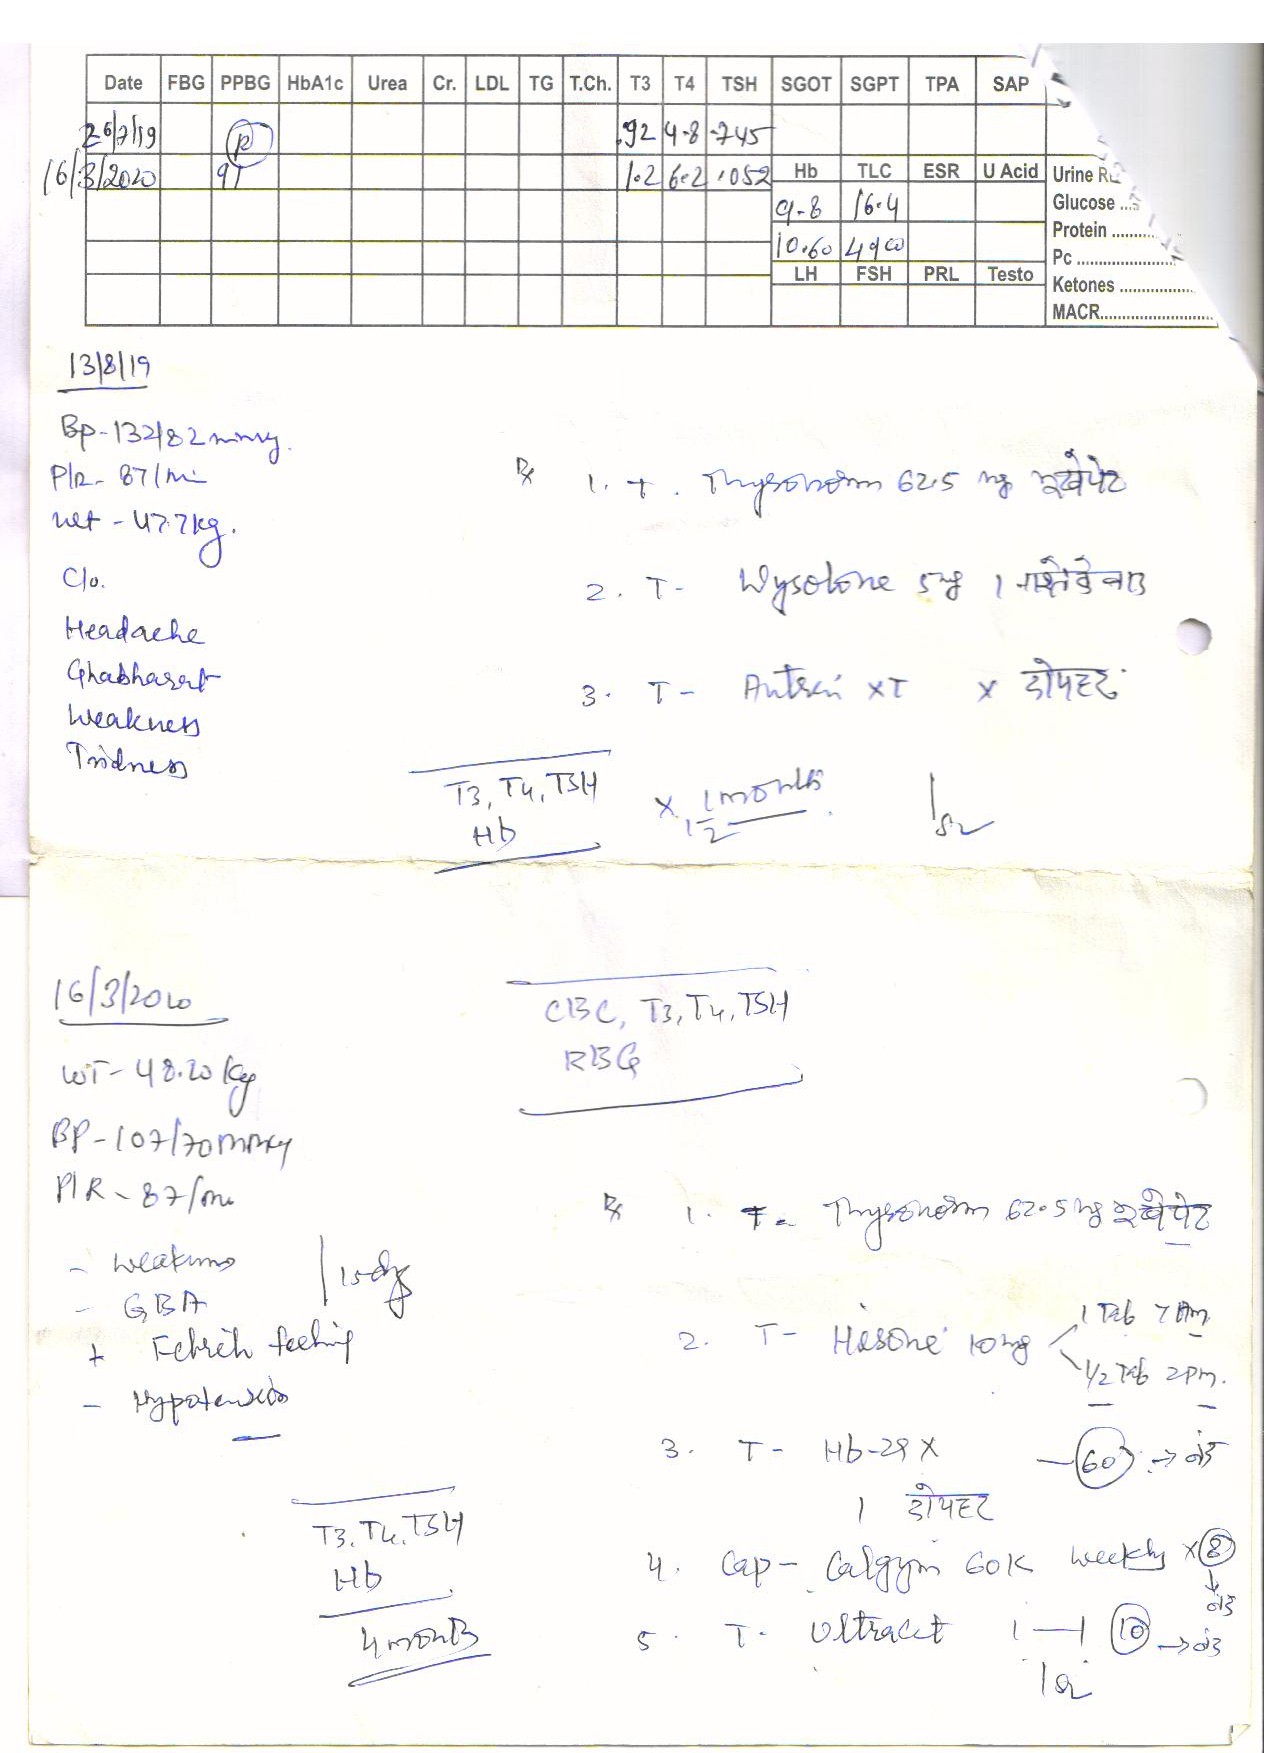 Date FBG PPBG HbA1c Urea Cr. LDL TG T.Ch. T3 T4 TSH SGOT SGPT TPA SAP
26/7/19 (R) .92 4.8 .745
16/3/2020 97 1.2 6.2 .052 Hb TLC ESR U Acid Urine
Glucose
9.8 16.4
Protein
10.60 4900
Pc
LH FSH PRL Testo
Ketones
MACR
13/8/19
Bp-132/82 mmHg.
P/R- 87/mi
wet - 47.7kg.
Rx 1. T. Thyronorm 62.5 mg खाली पेट
C/o.
2. T- Wysolone 5mg 1 नाश्ते के बाद
Headache
Ghabharat
3. T- XT x दोपहर
Weakness
Tridness
T3, T4, TSH
Hb
x 1 1/2 months
16/3/2020
CBC, T3, T4, TSH
RBG
WT- 48.20 kg
BP-107/70 mmHg
P/R - 87/mi
Rx 1. T- Thyronorm 62.5 mg खाली पेट
- Weakness
- GBA
15 day
+ Febrile feeling
2. T- Hisone 10mg 1 Tab 7 Am.
1/2 Tab 2 pm.
- Hypotension
3. T- Hb-29 X - 60 →
1 दोपहर
T3, T4, TSH
Hb
4. Cap- 60K weekly x 8
4 months
5. T- Ultracet 1 — 1 10 →